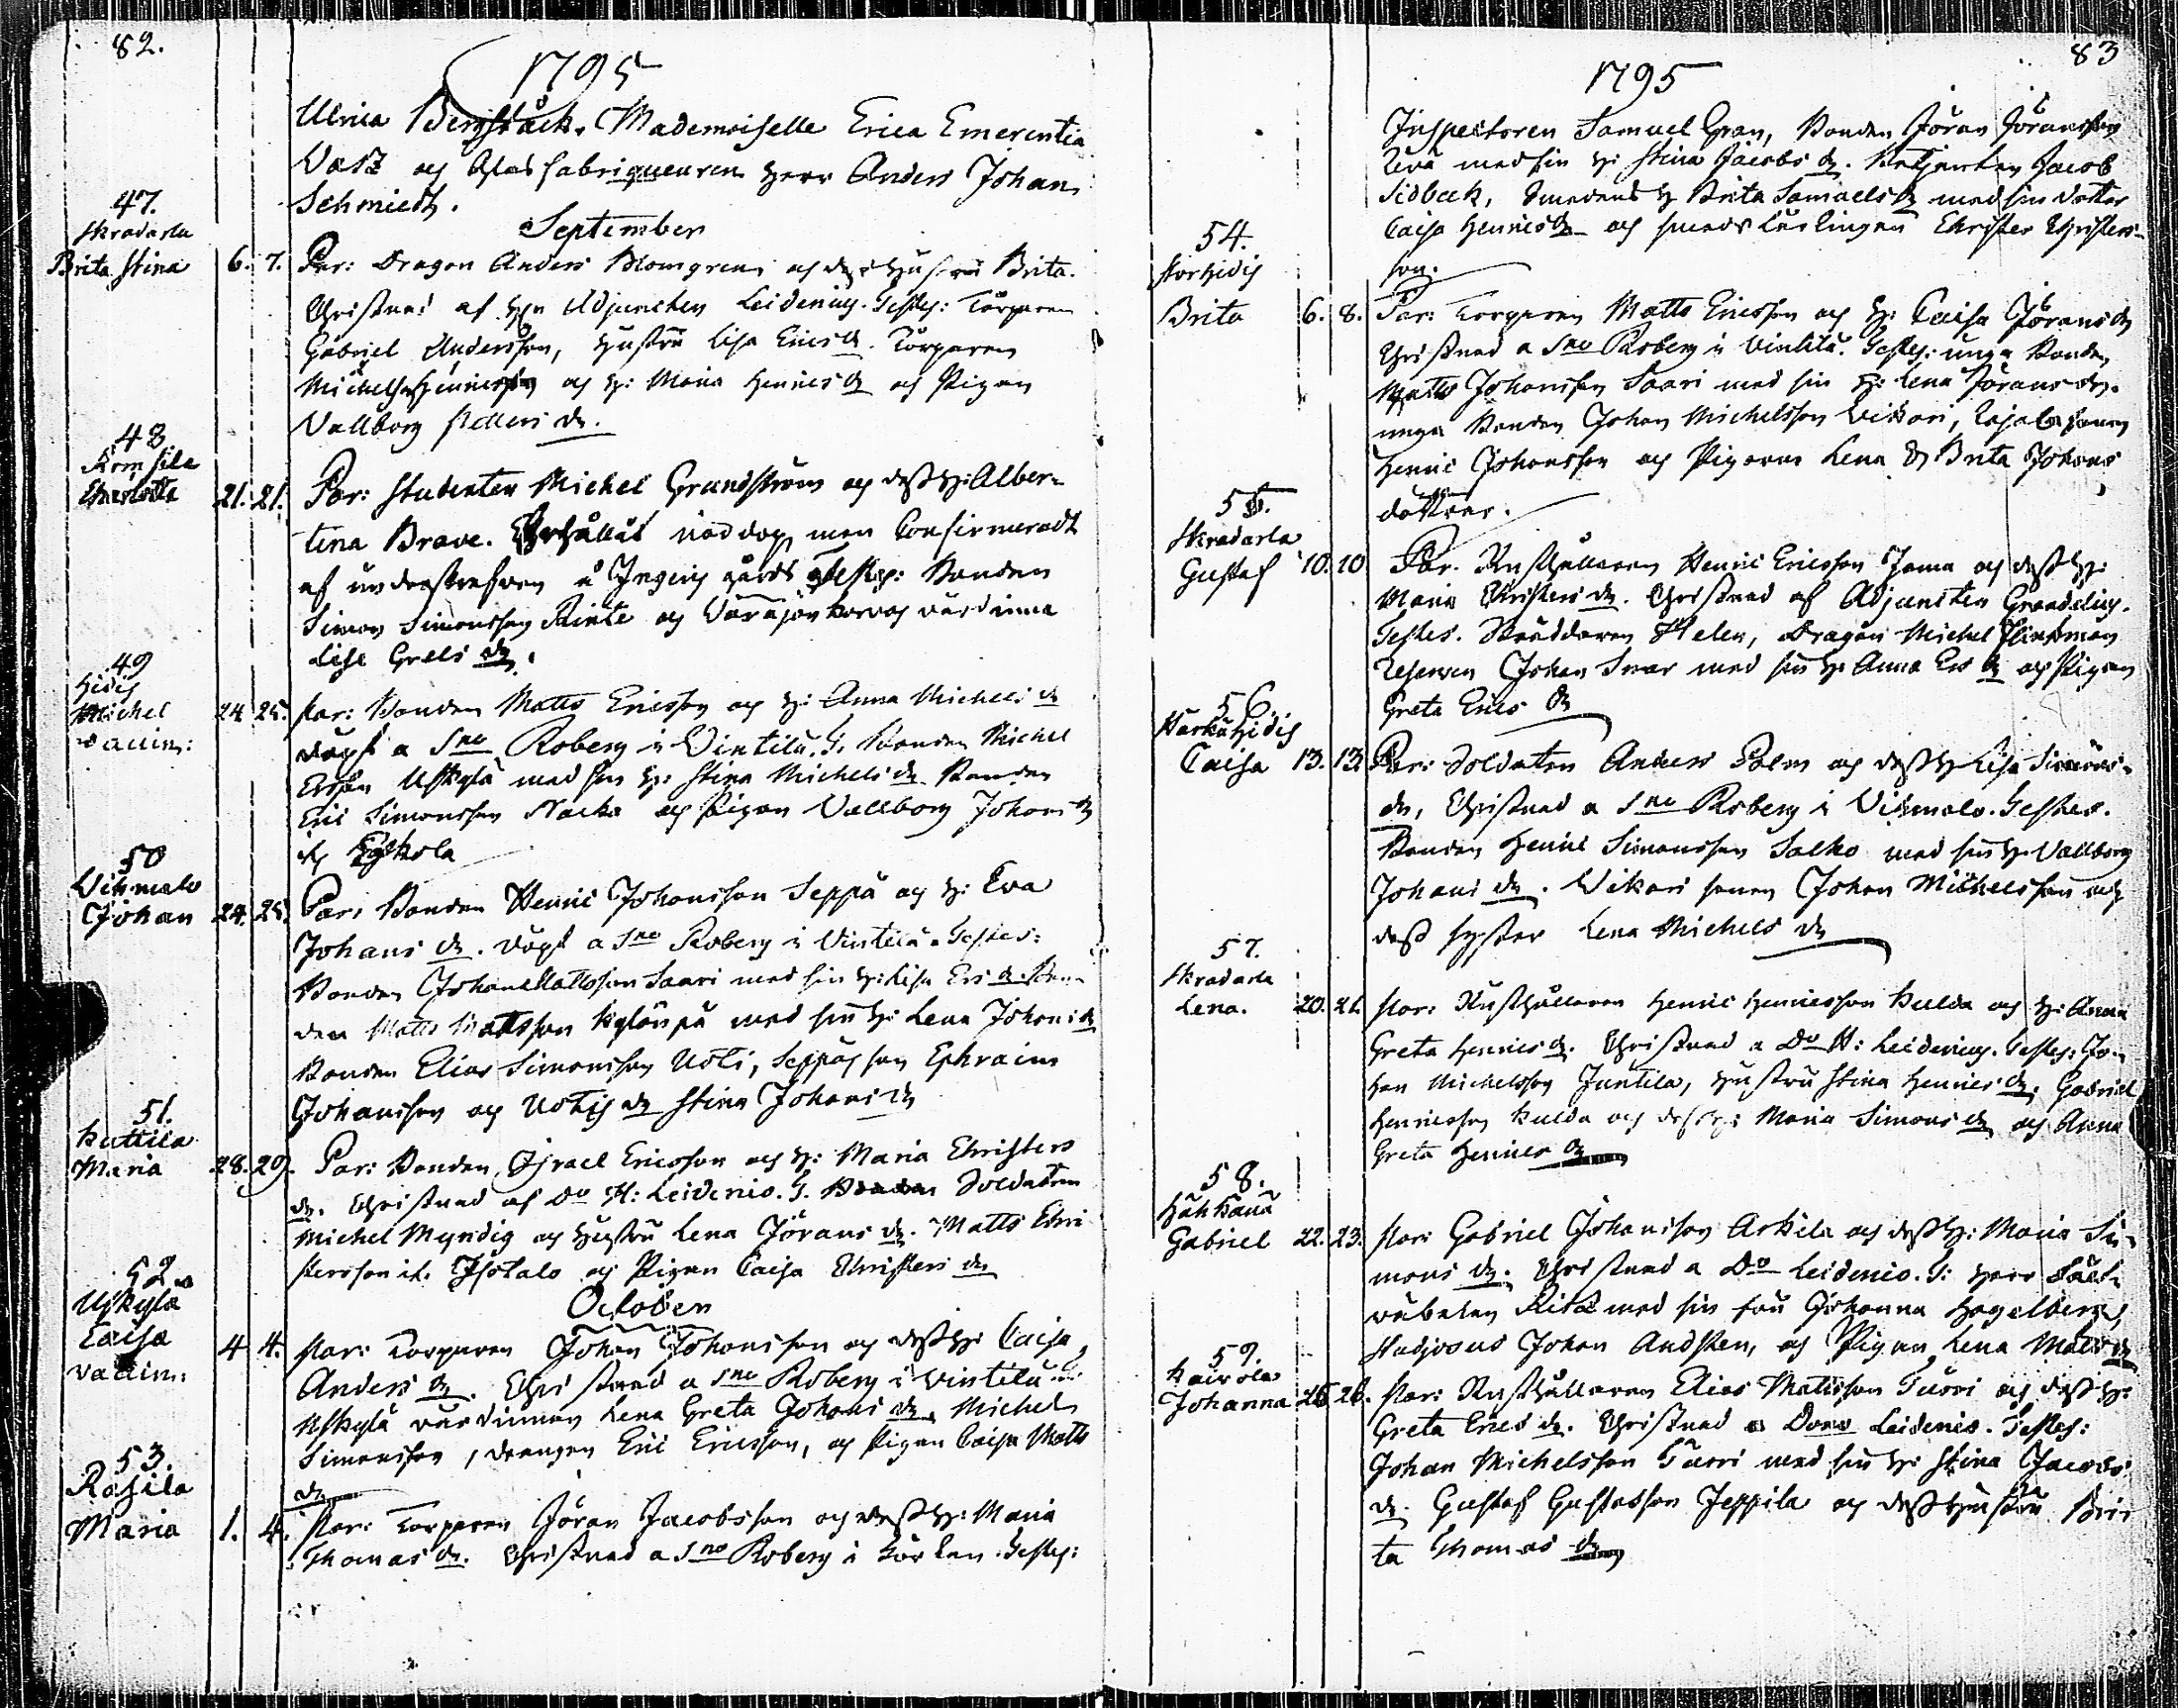 82.
1795
Ulrica Bergstäck. Mademoiselle Erica Emerentia
Vasz och Glasfabriqueuren Herr Anders Johan
Schmiedt.
September
47.
Skradarla
Brita Stina 6. 7. Par: Dragon Anders Blomgren och dess hustru Brita.
Christnad af Hr Adjuncten Leidenius. Testes: Torparen
Gabriel Andersson, hustru Lisa Ericsdr. Torparen
Michel Henricsson och H: Maria Henricsdr och Pigan
Vallborg dr.
48
Charlotta 21. 21. Par: Studenten Michel Grundström och dess H: Alber-
tina Brave. nöddop, men Confirmeradt
af underskrefven å gård Testes: Bonden
Simon Simonsson Rinte och värdinna
Lisa Grels dr.
49
Hidis
Michel 24 25. Par: Bonden Matts Ericsson och H: Anna Michels dr
Vaccin: döpt a Sno Roberg i Vintilä. T. Bonden Michel
Erson Uskylä med sin H: Stina Michelsdr Bonden
Eric Simonsson Nacka och Pigan Vallborg Johansdr
50
Vihmalo
Johan 24. 25. Par: Bonden Henric Johansson Seppä och H: Eva
Johans dr. döpt a Sno Roberg i Vintilä. Testes:
Bonden Johan Mattsson Saari med sin H: Lisa Ersdr. Bon-
den Matts Mattsson med sin H: Lena Johansdr
Bonden Elias Simonsson Uoti, Seppäs son Ephraim
Johansson och Uotis dr Stina Johansdr
51.
Kuttila
Maria 28. 29. Par: Bonden Israel Ericsson och H: Maria Christers
dr. Christnad af Do H: Leidenio. T. Soldaten
Michel Myndig och hustru Lena Jörans dr. Matts Chri-
stersson it. Isotalo och Pigan Caisa Christers dr
October
52
Uskylä
Caisa 4 4. Par: Torparen Johan Johansson och dess H: Caisa
Vaccin: Anders dr. Christnad a Sno Roberg i Vintilä T:
Uskylä värdinnan Lena Greta Johans dr. Michel
Simonsson, drängen Eric Ericsson, och Pigan Caisa Matts
dr
53.
Rahila
Maria 1. 4. Par: Torparen Jöran Jacobsson och dess H: Maria
Thomas dr. Christnad a Sno Roberg i Testes:
83
1795
Inspectoren Samuel Gran, Bonden Jöran Jöransson
med sin H: Stina Jacobs dr. Jacob
Sidbeck, Smedens H Brita Samuels dr med sin dotter
Caisa Henricsdr och smedslärlingen Christer Christers-
son.
54.
Storhidis
Brita 6. 8. Par: Torparen Matts Ericsson och H: Caisa Jörans dr
Christnad a Sno Roberg i Vintilä. Testes: unga Bonden
Matts Johansson Saari med sin H: Lena Jörans dr.
unga Bonden Johan Michelsson Vikari,
Henric Johansson och Pigorna Lena & Brita Johans
döttrar.
55.
Skradarla
Gustaf 10. 10 Par. Rusthållaren Henric Ericsson Jama och dess H:
Maria Christers dr. Christnad af Adjuncten Grandelius.
Testes. Skräddaren Helen, Dragon Michel Flinkman
Johan Snar med sin H: Anna Ers dr och Pigan
Greta Erics dr
56.
Härkähidis
Caisa 13. 13. Par: Soldaten Anders Palm och dess H: Lisa Simons-
dr, Christnad a Sno Roberg i Vihmalo. Testes.
Bonden Henric Simonsson Salko med sin H: Vallborg
Johans dr. Vikari sonen Johan Michelsson och
dess syster Lena Michels dr
57.
Skradarla
Lena. 20. 21. Par: Rusthållaren Henric Henricsson Kulda och H: Anna
Greta Henrics dr. Christnad a Do H: Leidenius. Testes: Jo-
han Michelsson Juntila, hustru Stina Henrics dr. Gabriel
Henricsson Kulda och dess H: Maria Simons dr och Anna
Greta Henrics dr
58.
Hähkänä
Gabriel 22. 23. Par: Gabriel Johansson Arkila och dess H: Maria Si-
mons dr. Christnad a Do Leidenio. T: Herr Fält-
väbelen med sin fru Johanna Hagelberg,
Studiosus Johan, och Pigan Lena Matts dr
59.
Kairola
Johanna 25 26. Par: Rusthållaren Elias Mattsson Tuori och dess H:
Greta Erics dr. Christnad a Domo Leidenio. Testes:
Johan Michelsson Tuori med sin H: Stina Jacobs
dr. Gustaf Gustafsson Jeppila och dess hustru Bri-
ta Thomas dr